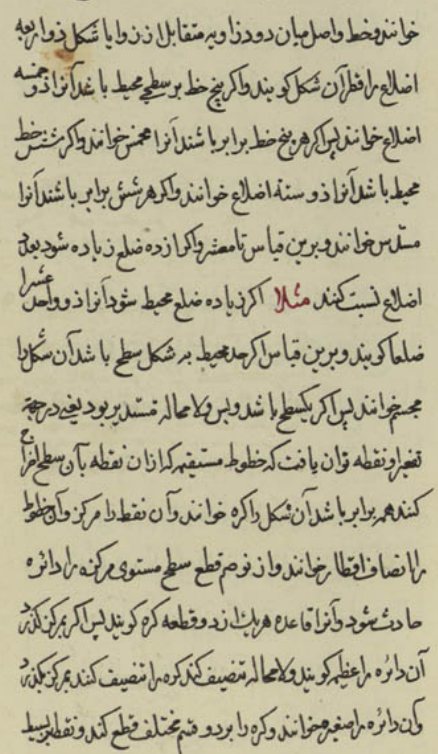 خوانند و خط واصل میان دو زاویه متقابل از زوایا شکل ذو اربعه
اضلاع را قطر آن شکل کویند و اکر پنج خط بر سطحی محیط باشد آنرا ذو خمسه
اضلاع خوانند پس اکر هر پنج خط برابر باشند آنرا مخمس خوانند و اکر شش خط
محیط باشد آنرا ذو سته اضلاع خوانند و اکر هر شش برابر باشند آنرا
مسدس خوانند و برین قیاس تا معشر و اکر از ده ضلع زیاده شود بعدد
اضلاع نسبت کنند مثلا اکر یازده ضلع محیط شود آنرا ذو واحد عشرا
ضلعا کویند و برین قیاس اکر حد محیط به شکل سطح باشد آن شکل را
مجسم خوانند پس اکر یکسطح باشد و بس ولا محاله مستدیر بود یعنی در جهة
تقعیر او نقطه توان یافت که خطوط مستقیمه که از ان نقطه بآن سطح اخراج
کنند همه برابر باشد آن شکل را کره خوانند و آن نقطه را مرکز و آن خطوط
را انصاف اقطار خوانند و از توهم قطع سطح مستوی مر کره را دائره
حادث شود و آنرا قاعده هر یک از دو قطعه کره کویند پس اکر بمرکز کذرد
آن دائره را عظیمه کویند ولا محاله تنصیف کند کره را تنصیف کنند بمرکز بکذرد
و آن دائره را صغیره خوانند و کره را بدو قسم مختلف قطع کند و نقطه بر بسیط